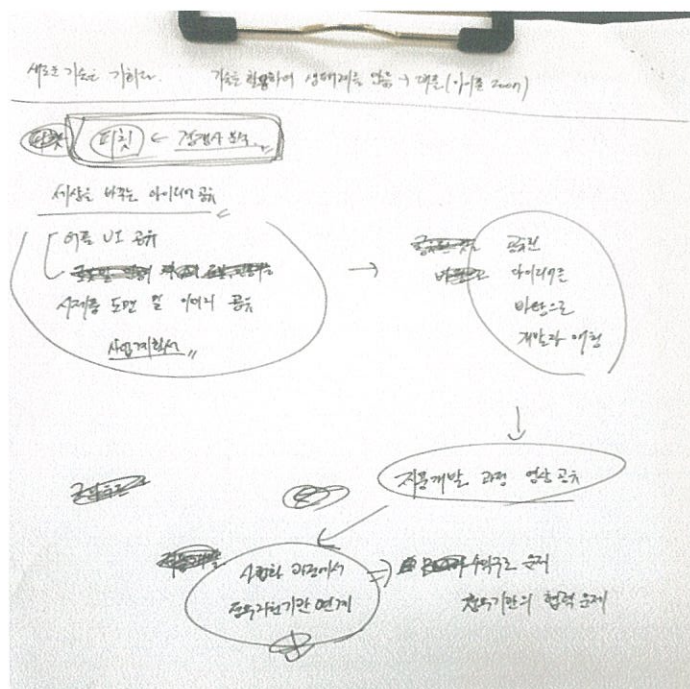 새로운 기술은 기회다. 기술을 활용하여 생태계를 만듦 → 대응(아이폰 2007)
피칭 ← 경쟁사 분석
세상을 바꾸는 아이디어 공유
어플 UI 공유
시제품 도면 및 이미지 공유
사업계획서
→ 공유된
아이디어를
바탕으로
개발자 매칭
제품개발 과정 영상 공유
사업화 과정에서
정부지원기관 연계
⇒ 수익구조 문제
정부기관의 협력 문제